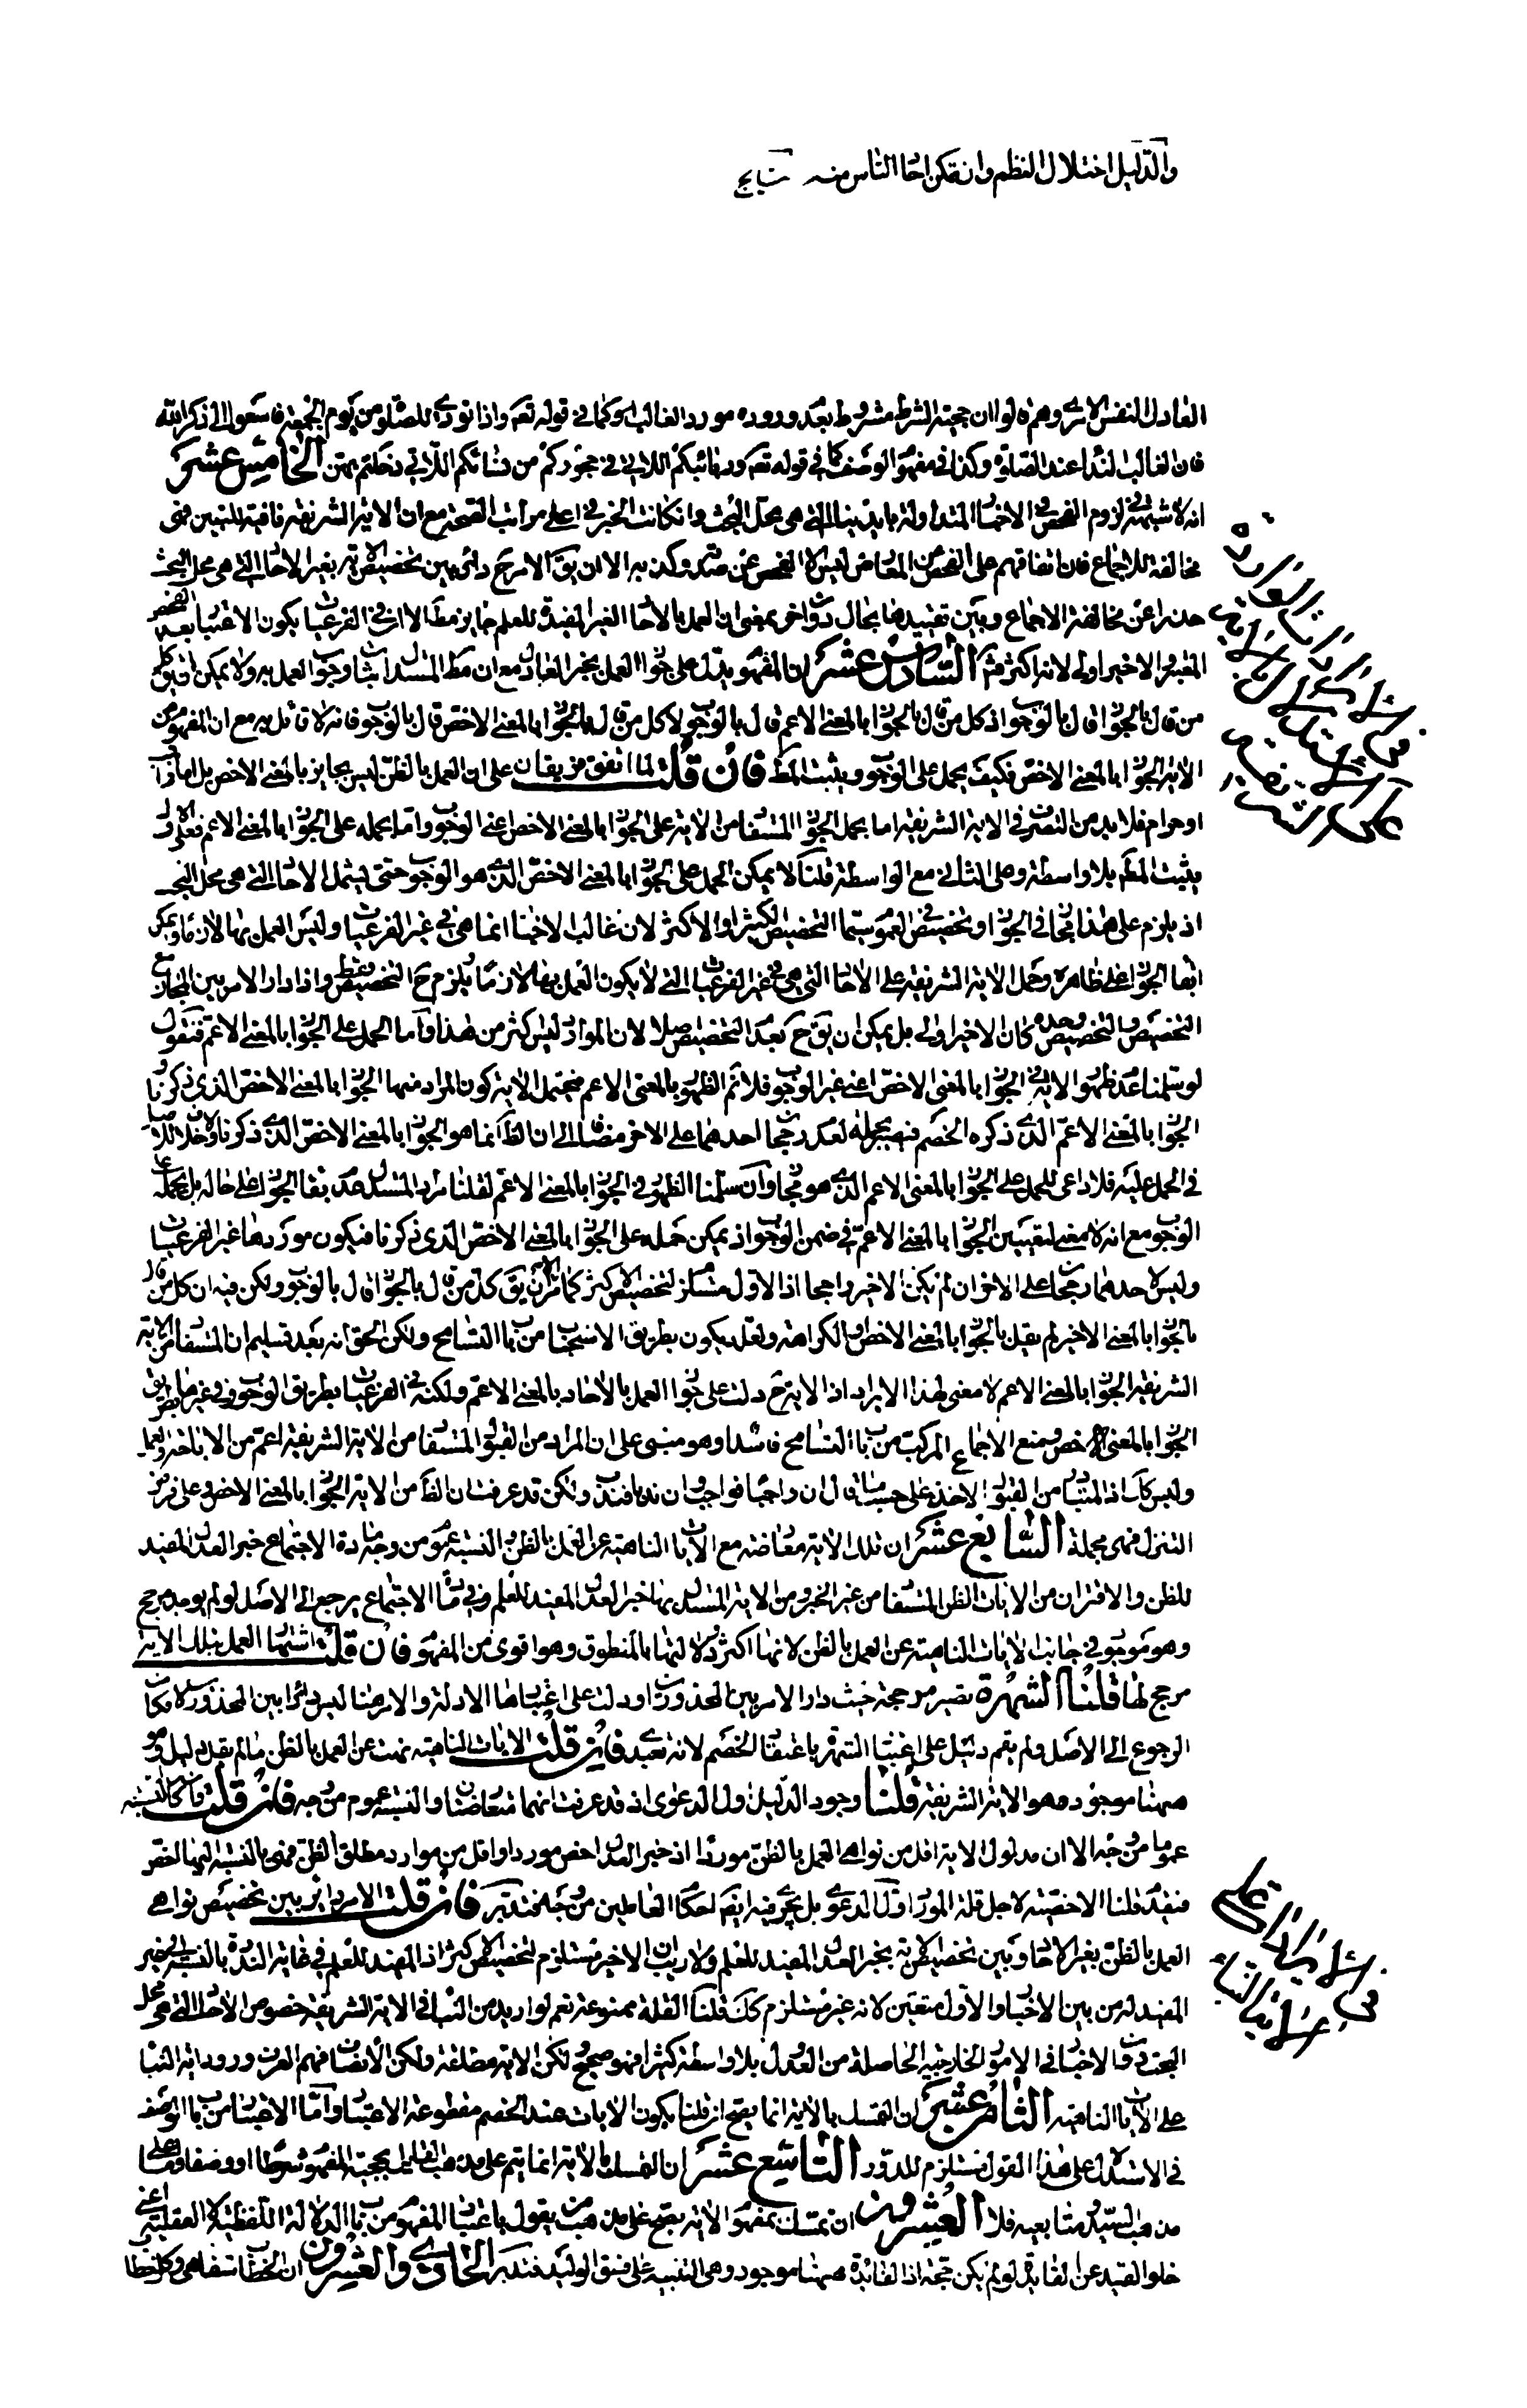 والدليل اختلال النظم وان تمكن احاد الناس منه
العادل النفس الامرى وهم لو ان حجية الشرط مشروط بعد وروده مورد الغالب كما فى قوله تعه واذا نودى للصلوة من يوم الجمعة فاسعوا الى ذكر الله
فان الغالب النداء عند الصلوة وكذا فى مفهوم الوصف كما فى قوله تعه وربائبكم اللاتى فى حجوركم من نسائكم اللاتى دخلتم بهن الخامس عشر
انه لا شبهة فى لزوم الفحص فى الاخبار المتداولة بايدينا التى هى محل البحث وان كانت الخبر فى اعلى مراتب الصحة مع ان الاية الشريفة نافية للتبين فهى
مخالفة للاجماع فان اتفاقهم على الفحص عن المعارض ليس الا الفحص عن صدقه وكذبه الا ان يق الامر ح دائر بين تخصيص الاية بغير الاخبار التى هى محل البحث
حذرا عن مخالفة الاجماع وبين تقييدها بحال دون اخر بمعنى ان العمل بالاخبار الغير المفيدة للعلم جايز مطلقا الا ان فى الفرعيات يكون الاعتبار بعد الفحص
المعتبر والاخير اولى لانه اكثر السادس عشر ان المفهوم يدل على جواز العمل بخبر العادل مع ان مط المستدل اثبات وجوب العمل به ولا يمكن ان يق كل
من قال بالجواز قال بالوجوب اذ كل من قال بالجواز بالمعنى الاعم قال بالوجوب لا كل من قال بالجواز بالمعنى الاخص قال بالوجوب فانه لا قائل به مع ان المفهوم من
الاية الجواز بالمعنى الاخص فكيف يحمل على الوجوب ويثبت المط فان قلت لما اتفق فريقان على ان العمل بالظن ليس بجايز بالمعنى الاخص بل اما واجب
او حرام فلا بد من التصرف فى الاية الشريفة اما بحمل الجواز المستفاد من الاية على الجواز بالمعنى الاخص اعنى الوجوب واما بحمله على الجواز بالمعنى الاعم فعلى الاول
يثبت المط بلا واسطة وعلى الثانى مع الواسطة قلنا لا يمكن الحمل على الجواز بالمعنى الاخص الذى هو الوجوب حتى يشمل الاخبار التى هى محل البحث
اذ يلزم على هذا مجاز فى الجواز وتخصيص فى العموم سيما التخصيص الكثير او الاكثر لان غالب الاخبار انما هى فى غير الفرعيات وليس العمل بها لازما ويمكن
ابقاء الجواز على ظاهره وحمل الاية الشريفة على الاخبار التى هى فى غير الفرعيات التى لا يكون العمل بها لازما يلزم ح التخصيص فقط واذا دار الامر بين المجاز مع
التخصيص والتخصيص وحده كان الاخير اولى بل يمكن ان يق ح بعد التخصيص اصلا لان الموارد ليس اكثر من هذا واما الحمل على الجواز بالمعنى الاعم فنقول
لو سلمنا عدم ظهور الاية فى الجواز بالمعنى الاخص اعنى غير الوجوب فلا ثم الظهور بالمعنى الاعم فيحتمل الاية كون المراد منها الجواز بالمعنى الاخص الذى ذكرنا و
الجواز بالمعنى الاعم الذى ذكره الخصم فهى مجملة لعدم رجحان احدهما على الاخر مضافا الى ان الظ انما هو الجواز بالمعنى الاخص الذى ذكرنا ولا خلاف اصلا
فى الحمل عليه فلا داعى للحمل على الجواز بالمعنى الاعم الذى هو مجاز وان سلمنا الظهور فى الجواز بالمعنى الاعم لقلنا مراد المستدل عدم بقاء الجواز على حاله بل يحمله على
الوجوب مع انه لا معنى لتعيين الجواز بالمعنى الاعم فى ضمن الوجوب اذ يمكن حمله على الجواز بالمعنى الاخص الذى ذكرنا فيكون موردها غير الفرعيات
وليس لاحدهما رجحان على الاخر ان لم يكن الاخير راجحا اذ الاول مستلزم لتخصيص الاكثر كما مر الا ان يق كل من قال بالجواز قال بالوجوب ولكن فيه ان كل من قال
بالجواز بالمعنى الاخير لم يقل بالجواز بالمعنى الاخص او الكراهة ولعله يكون بطريق الاستحباب من باب التسامح ولكن الحق انه بعد تسليم ان المستفاد من الاية
الشريفة الجواز بالمعنى الاعم لا معنى لهذا الايراد اذ الاية ح دلت على جواز العمل بالاحاد بالمعنى الاعم ولكنه فى الفرعيات بطريق الوجوب وفى غيرها بطريق
الجواز بالمعنى الاخص ومنع الاجماع المركب من باب التسامح فاسد وهو مبنى على ان المراد من القبول المستفاد من الاية الشريفة اعم من الاباحة والعمل
وليس كك اذ المتبادر من القبول الاخذ على حسب ما قال ان واجبا فواجب وان ندبا فندب ولكن قد عرفت ان الظ من الاية الجواز بالمعنى الاخص وعلى فرض
التنزل فهى مجملة السابع عشر ان تلك الاية معارضة مع الايات الناهية عن العمل بالظن والنسبة عموم من وجه مادة الاجتماع خبر العدل المفيد
للظن والافتراق من الايات الظن المستفاد من غير الخبر ومن الاية المستدل بها خبر العدل المفيد للعلم وفى مادة الاجتماع يرجع الى الاصل لو لم يوجد مرجح
وهو موجود فى جانب الايات الناهية عن العمل بالظن لانها اكثر ودلالتها بالمنطوق وهو اقوى من المفهوم فان قلت اشتهار العمل بتلك الاية
مرجح لها قلنا الشهرة تصير مرجحة حيث دار الامر بين المحذورين او دلت على اعتبارها الادلة والامر هنا ليس دائرا بين المحذورين لامكان
الرجوع الى الاصل ولم يقم دليل على اعتبار الشهرة باعتقاد الخصم لانه تعبد فان قلت الايات الناهية نهت عن العمل بالظن ما لم يقل دليل وهو
ههنا موجود وهو الاية الشريفة قلنا وجود الدليل اول الدعوى اذ قد عرفت انهما متعارضان والنسبة عموم من وجه فان قلت ان كان النسبة
عموما من وجه الا ان مدلول الاية اقل من نواهى العمل بالظن موردا اذ خبر العدل اخص موردا واقل من موارد مطلق الظن فهى بالنسبة اليها اخص
فيقدم قلنا الاخصية لاجل قلة المورد اول الدعوى بل يجرى فيه ايضا حكم العامين من وجه فتدبر فان قلت الامر دائر بين تخصيص نواهى
العمل بالظن بغير الاحاد وبين تخصيص الاية بخبر العدل المفيد للعلم ولا ريب ان الاخير مستلزم لتخصيص الاكثر اذ المفيد للعلم فى غاية الندرة بالنسبة الى غير
المفيد له من بين الاخبار والاول متعين لانه غير مستلزم كك قلنا القلة ممنوعة نعم لو اريد من النبا فى الاية الشريفة خصوص الاخبار التى هى محل
البحث دون الاخبار فى الامور الخارجية الحاصلة من العدول بلا واسطة كثيرا فهو صحيح لكن الاية مطلقة ولكن الانصاف فهم العرف ورود اية النبا
على الايات الناهية الثامن عشر ان التمسك بالاية انما يصح اذ قلنا بكون الايات عند الخصم مقطوعة الاعتبار واما الاعتبار من باب الوصف
فى الاستدلال على هذا القول مستلزم للدور التاسع عشر ان التمسك بالاية انما يتم على مذهب القائل بحجية المفهوم شرطا او وصفا واما على
مذهب السيد ومتابعيه فلا العشرون ان تمسك بمفهوم الاية يصح على مذهب من يقول باعتبار المفهوم من باب الدلالة اللفظية لا العقلية اعنى
خلو القيد عن الفايدة لو لم يكن حجة اذ الفائدة ههنا موجود وهى التنبيه على فسق الوليد فتدبر الحادى والعشرون ان الخطاب شفاهى وكل خطاب